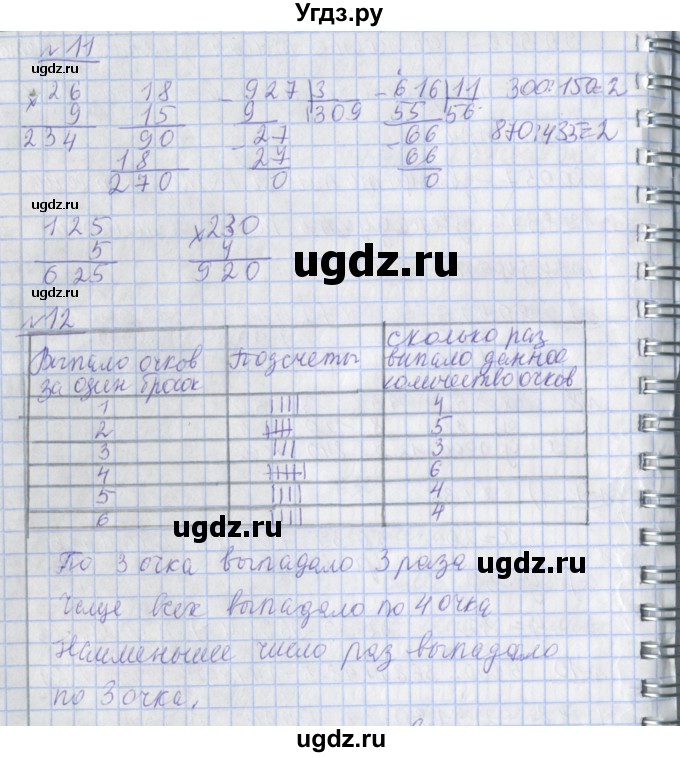 Угдз.ру
№ 11
ugdz.ru
ugdz.ru
× 26
9
234
18
15
90
18
270
- 927 | 3
9 | 309
- 27
27
0
- 616 | 11
55 | 56
- 66
66
0
300:150=2
870:435=2
ugdz.ru
125
5
625
× 230
4
920
ugdz.ru
ugdz.ru
№ 12
Выпало очков за один бросок | Подсчеты | сколько раз выпало данное количество очков
1 | |||| | 4
2 | 5
3 | ||| | 3
4 | 6
5 | |||| | 4
6 | |||| | 4
ugdz.ru
ugdz.ru
По 3 очка выпадало 3 раза
Чаще всех выпадало по 4 очка
Наименьшее число раз выпадало
по 3 очка.
ugdz.ru
ugdz.ru